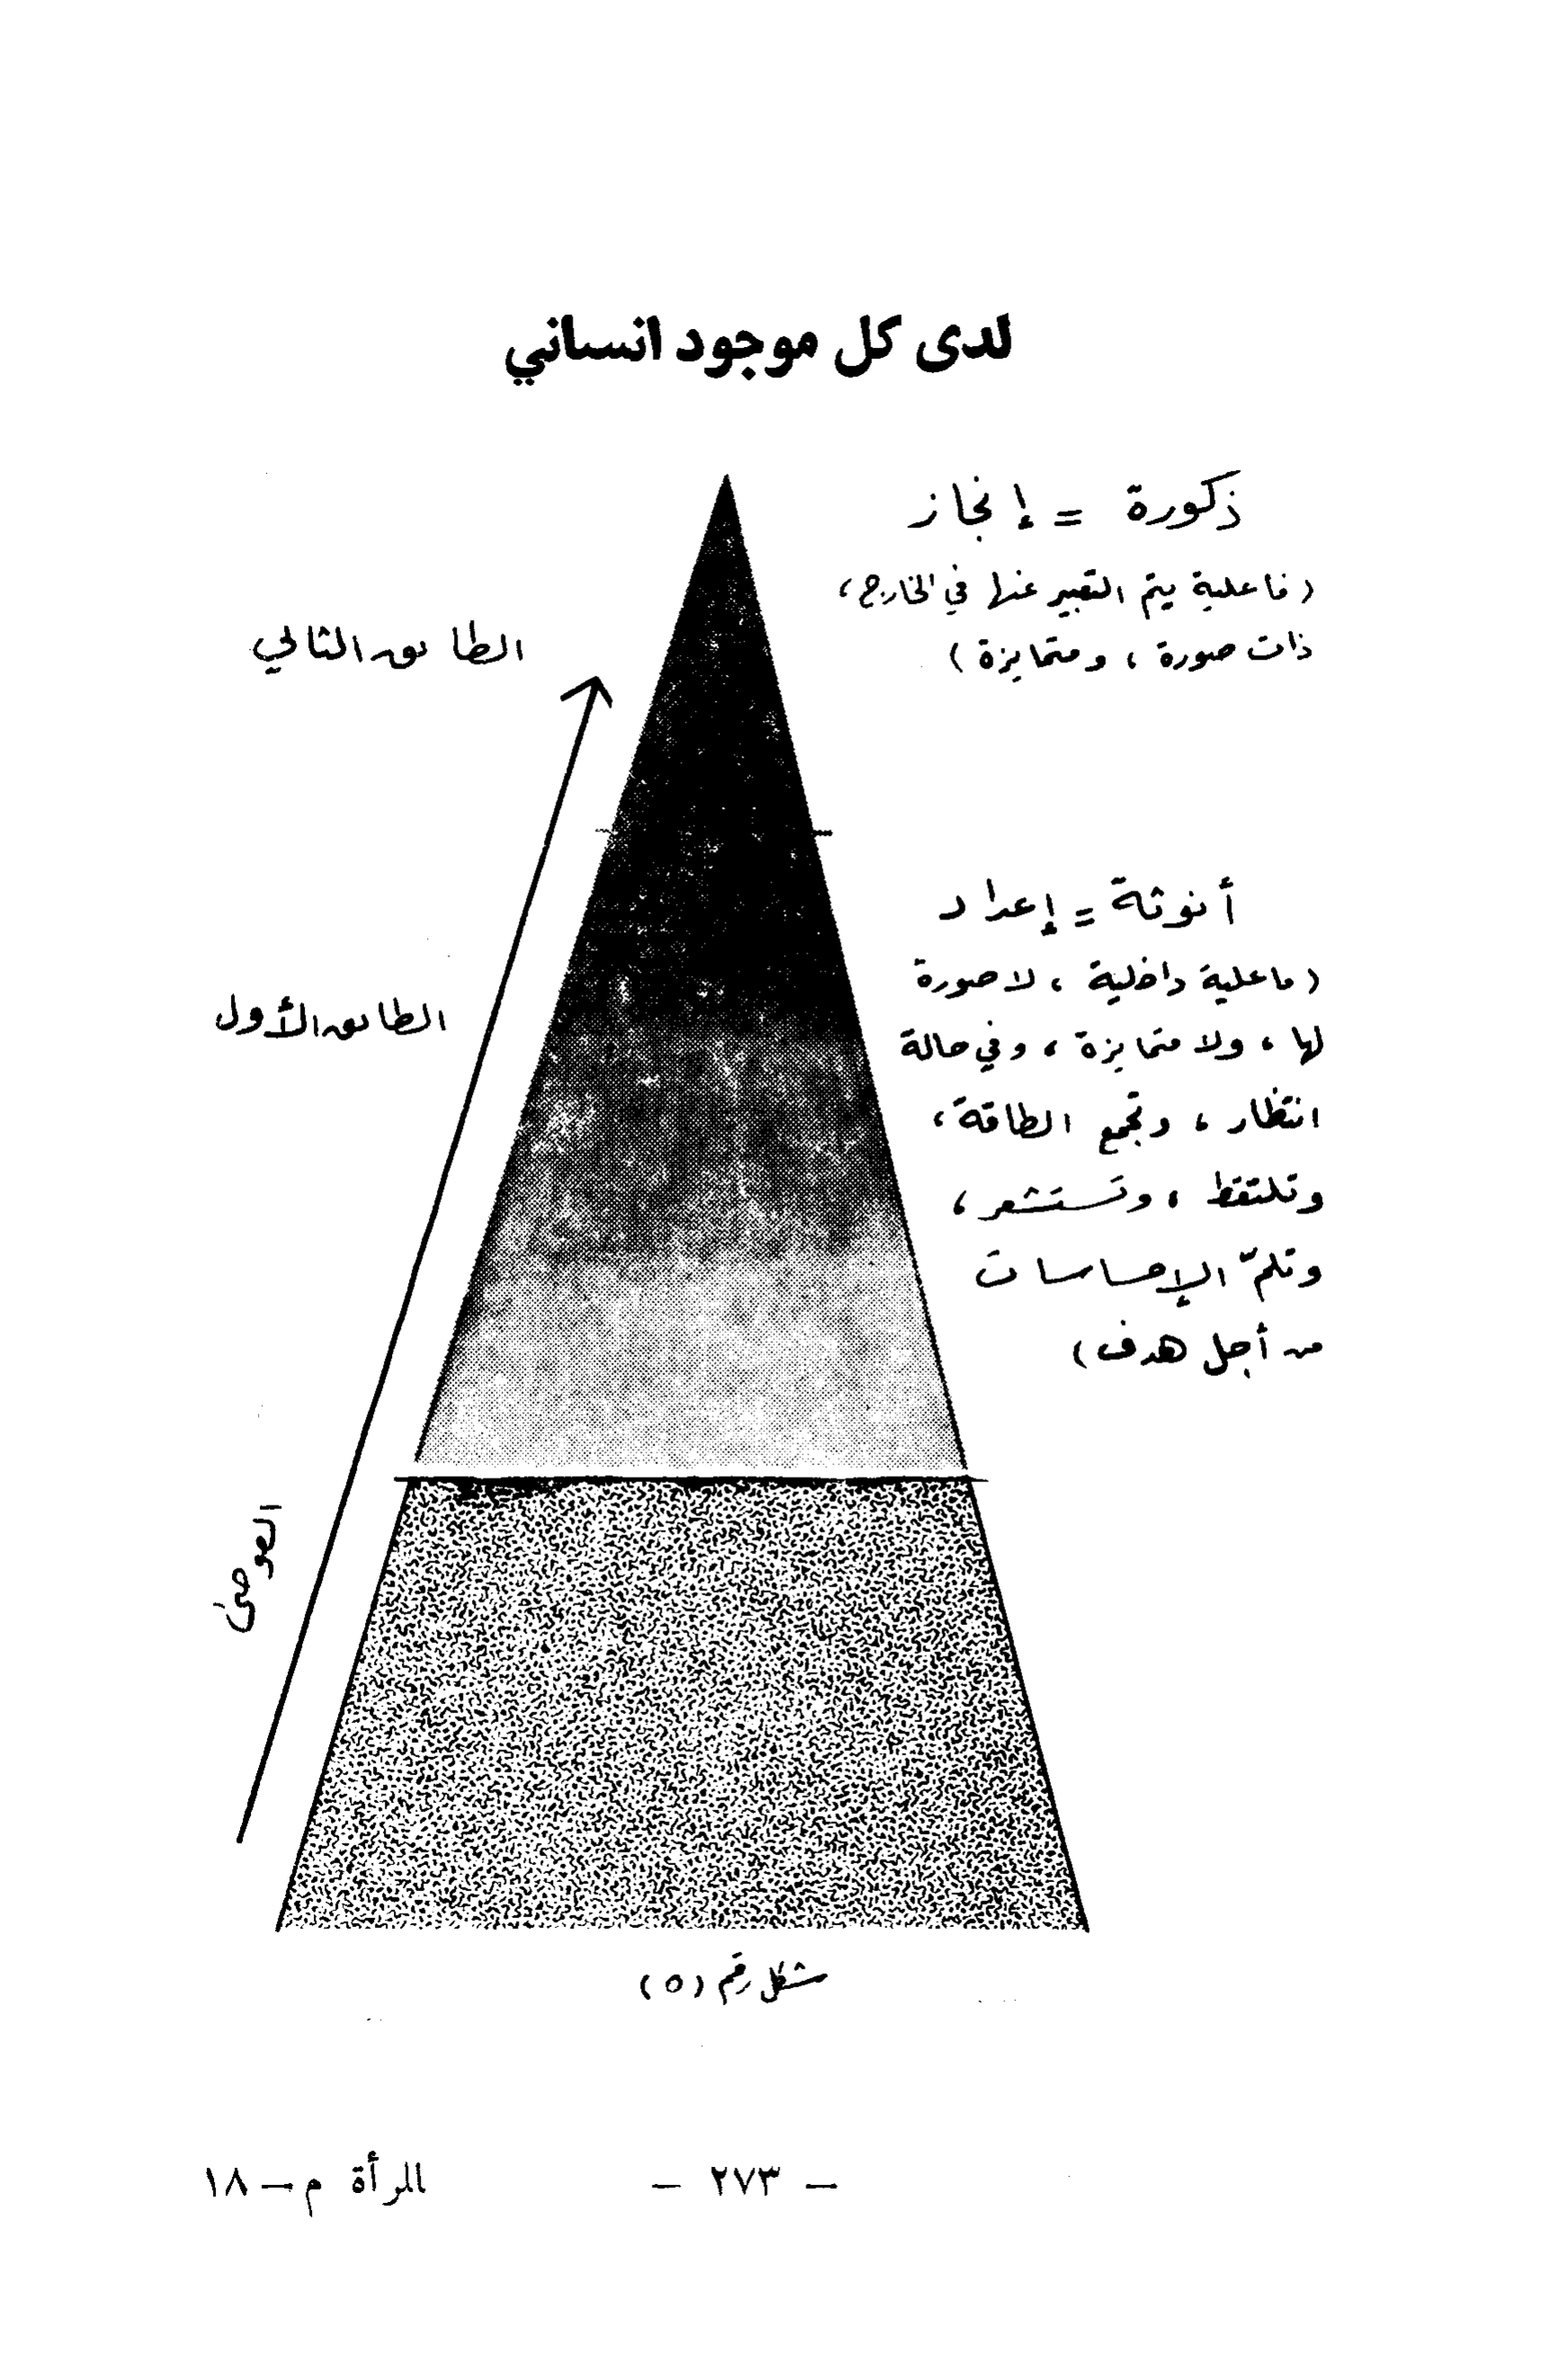 لدى كل موجود انساني
ذكورة = إنجاز
(فاعلية يتم التعبير عنها في الخارج،
ذات صورة ، ومتمايزة)
الطابق الثاني
أنوثة = إعداد
(فاعلية داخلية ، لا صورة
لها ، ولا متمايزة ، وفي حالة
انتظار ، وتجمع الطاقة ،
وتلتقط ، وتستشعر ،
وتلمّ الإحساسات
من أجل هدف)
الطابق الأول
الفوضى
شكل رقم (٥)
- ٢٧٣ -
المرأة م - ١٨